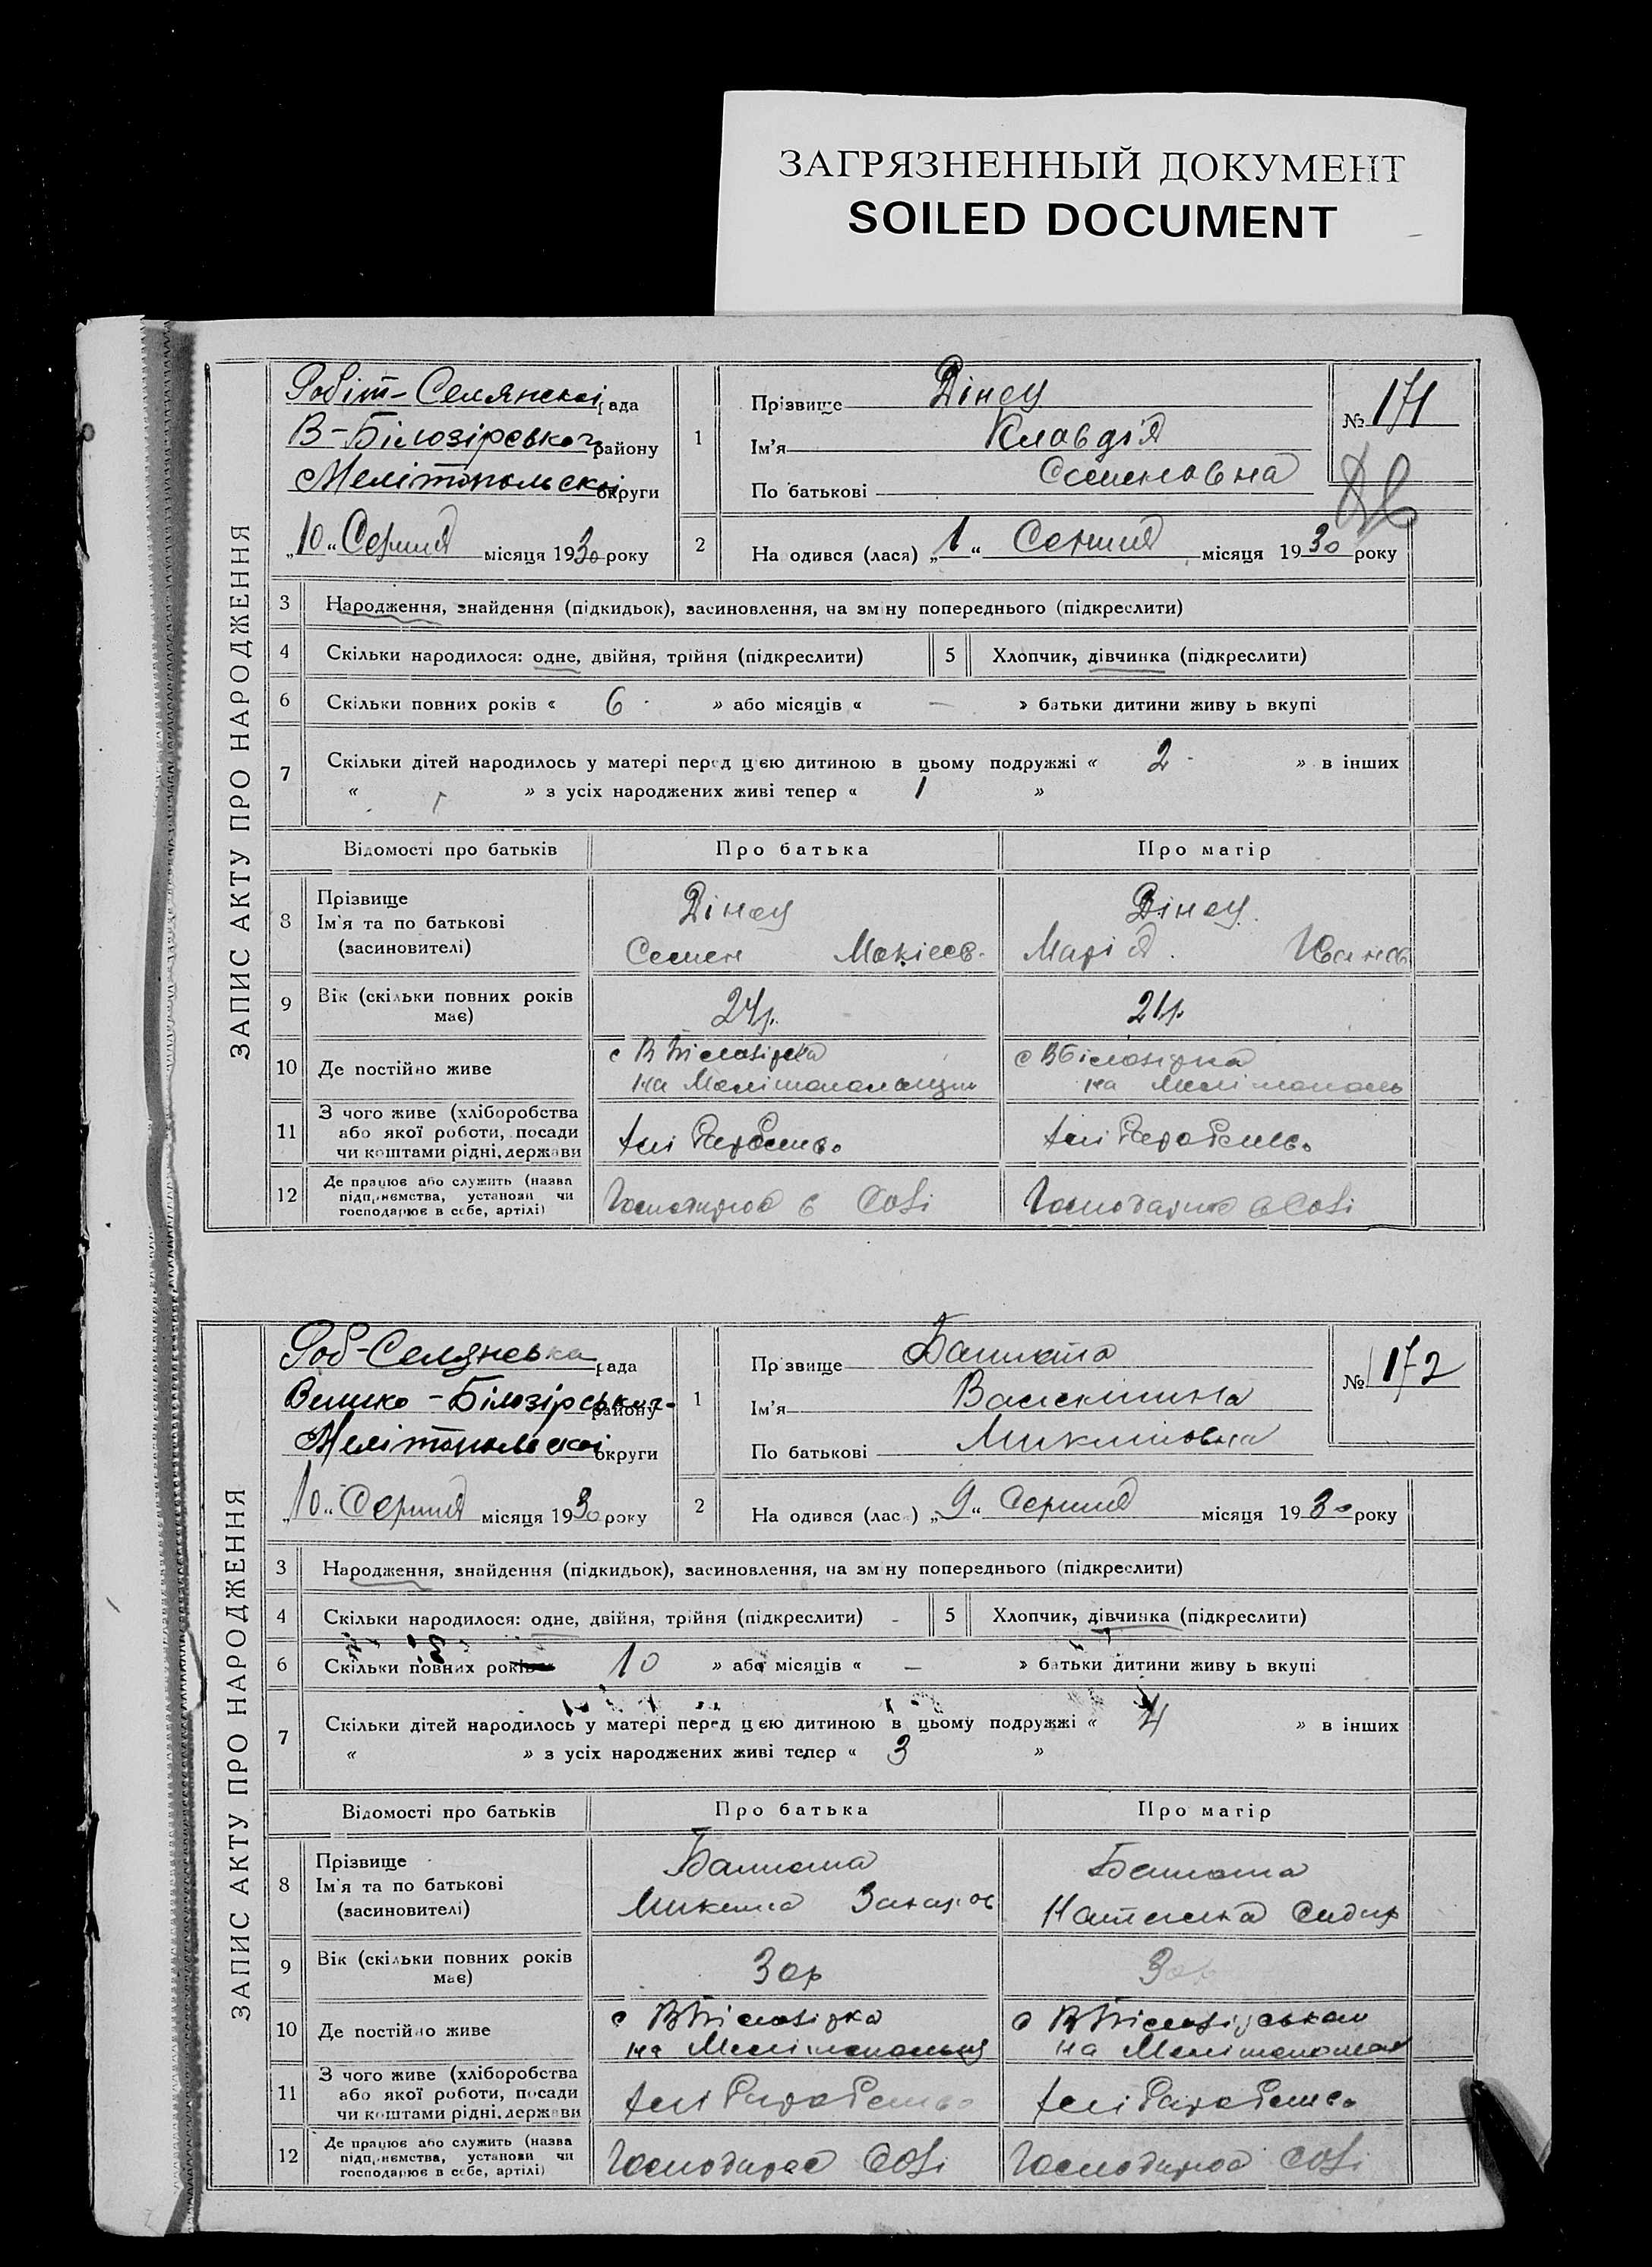 ЗАГРЯЗНЕННЫЙ ДОКУМЕНТ
SOILED DOCUMENT
ЗАПИС АКТУ ПРО НАРОДЖЕННЯ
Робіт-Селянскої рада
В-Білозірського району
Мелітопольскої округи
„10“ Серпня місяця 1930 року
1 Прізвище
Ім'я Клавдія
По батькові Семеновна
№ 171
2 На одився (лася) „1“ Серпня місяця 1930 року
3 Народження, знайдення (підкидьок), засиновлення, на зм ну попереднього (підкреслити)
4 Скільки народилося: одне, двійня, трійня (підкреслити)
5 Хлопчик, дівчинка (підкреслити)
6 Скільки повних років « 6 » або місяців « — » батьки дитини живу ь вкупі
7 Скільки дітей народилось у матері перед цією дитиною в цьому подружжі « 2 » в інших
« » з усіх народжених живі тепер « 1 »
Відомості про батьків Про батька Про матір
8 Прізвище
Ім'я та по батькові
(засиновителі)
Семен Мокіев. Марія Иванов
9 Вік (скільки повних років має) 24р. 21р.
10 Де постійно живе
с В Білозірка с В Білозірка
на Мелітопольщин на Мелітополь
11 З чого живе (хліборобства
або якої роботи, посади
чи коштами рідні, держави
хліборобство хліборобство
12 Де працює або служить (назва
підприємства, установи чи
господарює в себе, артілі)
Господарює в собі Господарює в собі
ЗАПИС АКТУ ПРО НАРОДЖЕННЯ
Роб-Селянська рада
Велико-Білозірського району
Мелітопольскої округи
„10“ Серпня місяця 1930 року
1 Пр звище
Ім'я Валентина
По батькові Микитовна
№ 172
2 На одився (лас ) „9“ Серпня місяця 1930 року
3 Народження, знайдення (підкидьок), засиновлення, на зм ну попереднього (підкреслити)
4 Скільки народилося: одне, двійня, трійня (підкреслити)
5 Хлопчик, дівчинка (підкреслити)
6 Скільки повних років 10 » або місяців « — » батьки дитини живу ь вкупі
7 Скільки дітей народилось у матері перед цією дитиною в цьому подружжі « 4 » в інших
« » з усіх народжених живі тепер « 3 »
Відомості про батьків Про батька Про матір
8 Прізвище
Ім'я та по батькові
(засиновителі)
Микита Захаров Сидор
9 Вік (скільки повних років має) 30р 30р
10 Де постійно живе
с В Білозірка с В
на Мелітопольщ на Мелітопол
11 З чого живе (хліборобства
або якої роботи, посади
чи коштами рідні, держави
хліборобство хліборобство
12 Де працює або служить (назва
підприємства, установи чи
господарює в себе, артілі)
Господарює собі Господарює собі